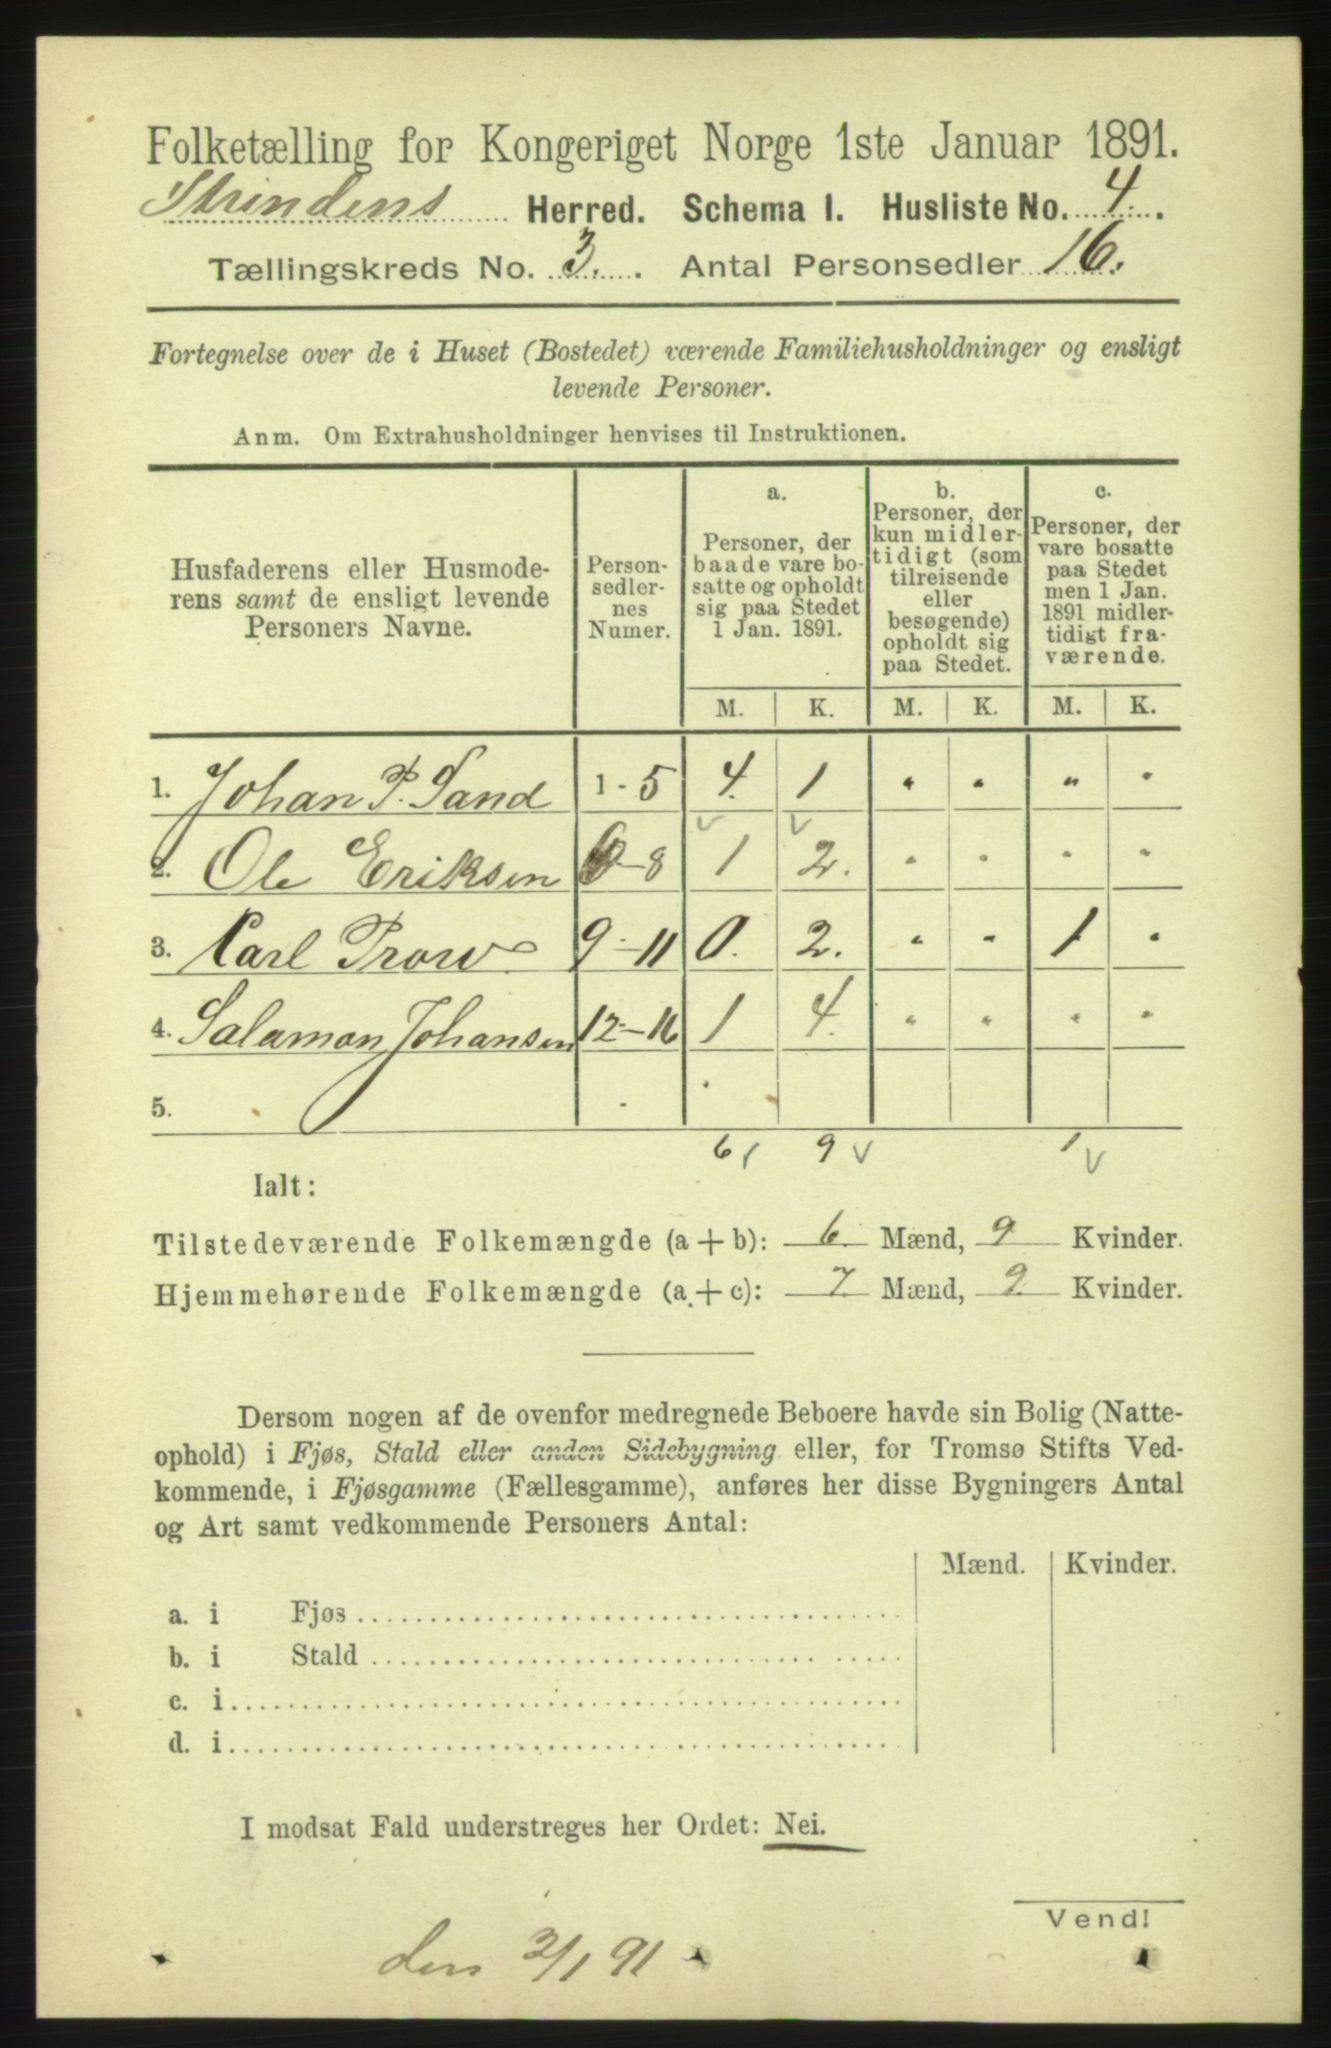 Folketælling for Kongeriget Norge 1ste Januar 1891.
Strindens Herred. Schema I. Husliste No. 4.
Tællingskreds No. 3. Antal Personsedler 16.
Fortegnelse over de i Huset (Bostedet) værende Familiehusholdninger og ensligt
levende Personer.
Anm. Om Extrahusholdninger henvises til Instruktionen.
Husfaderens eller Husmode-
rens samt de ensligt levende
Personers Navne.
Person-
sedler-
nes
Numer.
a.
Personer, der
baade vare bo-
satte og opholdt
sig paa Stedet
1 Jan. 1891.
b.
Personer, der
kun midler-
tidigt (som
tilreisende
eller
besøgende)
opholdt sig
paa Stedet.
c.
Personer, der
vare bosatte
paa Stedet
men 1 Jan.
1891 midler-
tidigt fra-
værende.
M. K. M. K. M. K.
1. Johan P. Sand 1-5 4. 1 " " " "
2. Ole Eriksen 6-8 1 2. " " " "
3. Carl Prow 9-11 0. 2. " " 1 "
4. Salamon Johansen 12-16 1 4. " " " "
5.
6 9 1
Ialt:
Tilstedeværende Folkemængde (a + b): 6. Mænd, 9 Kvinder.
Hjemmehørende Folkemængde (a + c): 7. Mænd, 9. Kvinder.
Dersom nogen af de ovenfor medregnede Beboere havde sin Bolig (Natte-
ophold) i Fjøs, Stald eller anden Sidebygning eller, for Tromsø Stifts Ved-
kommende, i Fjøsgamme (Fællesgamme), anføres her disse Bygningers Antal
og Art samt vedkommende Personers Antal:
Mænd. Kvinder.
a. i Fjøs
b. i Stald
c. i
d. i
I modsat Fald understreges her Ordet: Nei.
Vend!
den 3/1 91